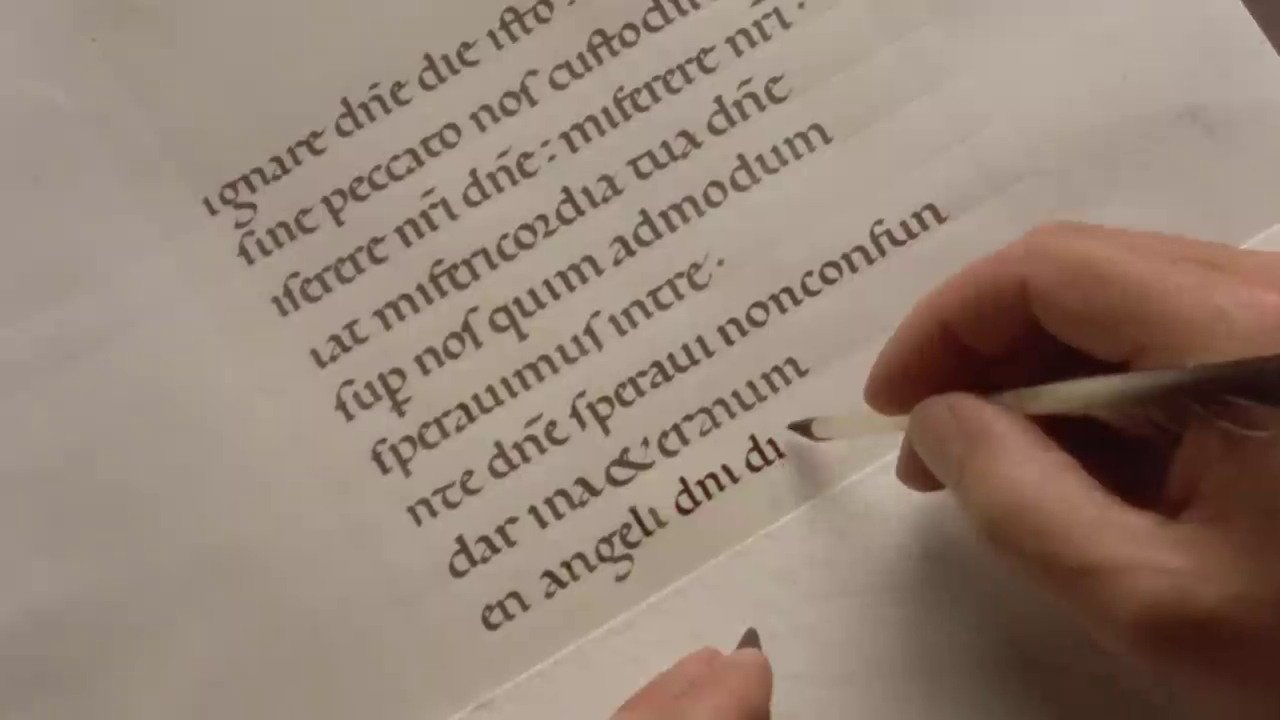 ıgnare dn̄e die isto
sine peccato nos custodi
ıserere nr̄i dn̄e : miserere nr̄i .
ıat misericordia tua dn̄e
sup̱ nos quim admodum
sperauimus intre .
nte dn̄e speraui nonconfun
dar ina&eranum
en angeli dni di